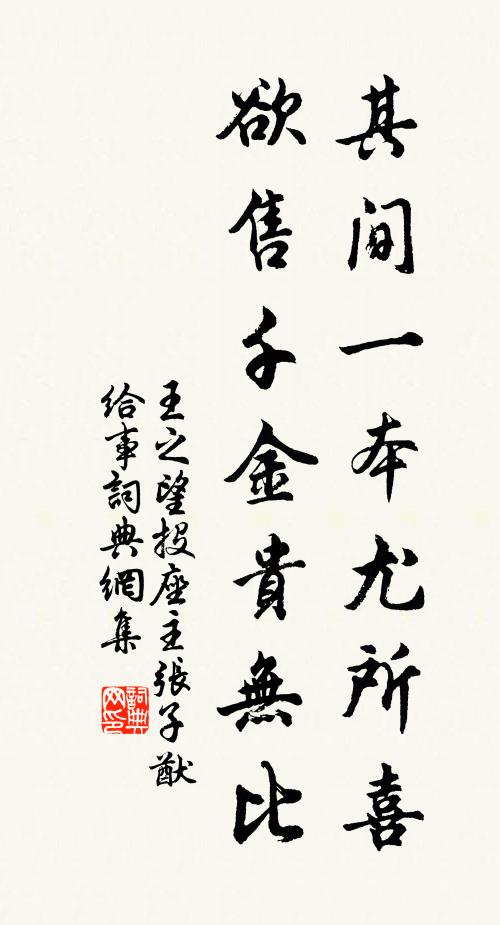 其间一本尤所喜
欲售千金貴無比
王之望投座主張子猷
给事詞典網集
詞典网印